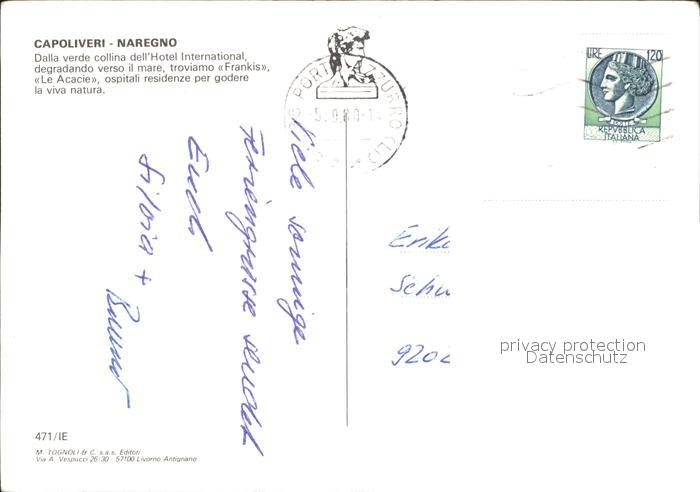 CAPOLIVERI - NAREGNO
Dalla verde collina dell'Hotel International,
degradando verso il mare, troviamo «Frankis»,
«Le Acacie», ospitali residenze per godere
la viva natura.
PORTO AZZURRO (LI)
5.9.80-1
LIRE 120
POSTE
REPVBBLICA
ITALIANA
Viele sonnige
Feriengrüsse sendet
Euch
Silvia +
Bruno
Erik
Schu
9202
privacy protection
Datenschutz
471/IE
M. TOGNOLI & C. s.a.s. Editori
Via A. Vespucci 26/30 - 57100 Livorno Antignano